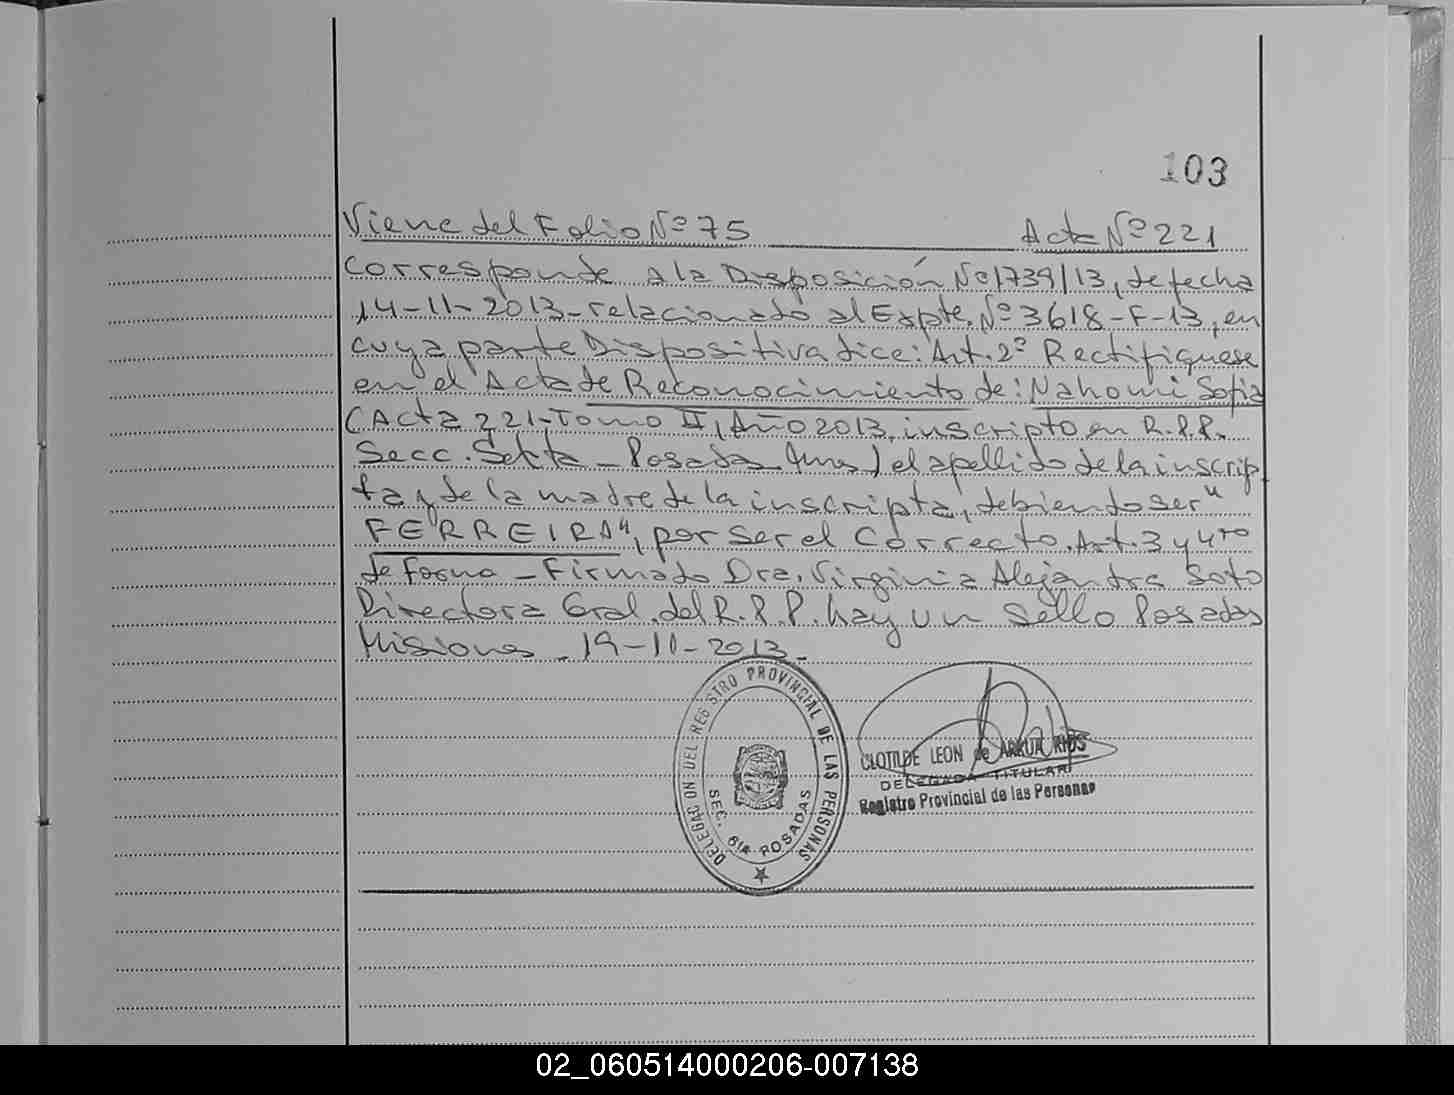 103
Viene del Folio Nº 75 Acta Nº 221
Corresponde a la Disposición Nº 1739/13, de fecha
14-11-2013-relacionado al Expte. Nº 3618-F-13, en
cuya parte Dispositiva dice: Art. 2º Rectifiquese
en el Acta de Reconocimiento de: Nahomi Sofia
(Acta 221-Tomo II, Año 2013, inscripto en R.P.P.
Secc. Sexta - Posadas Mnes) el apellido de la inscrip
ta y de la madre de la inscripta, debiendo ser "
FERREIRA", por ser el correcto. Art. 3 y 4to
de forma - Firmado Dra. Virginia Alejandra Soto
Directora Gral. del R.P.P. hay un sello Posadas
Misiones - 19-11-2013-
DELEGACION DEL REGISTRO PROVINCIAL DE LAS PERSONAS
SEC. 6ta POSADAS
CLOTILDE LEON de ARRUA RIOS
DELEGADA TITULAR
Registro Provincial de las Personas
02_060514000206-007138